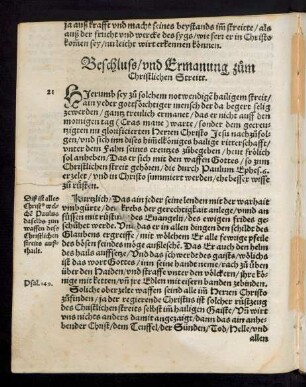 ja auß krafft und macht seines beystands im streitte/als
auß der frucht und werck des sygs/wie ferr er in Christo
komen sey/nu leicht wirt erkennen können.
Beschluss/vnd Ermanung zům
Christlichen Streitt.
21
HJerumb sey zů solchem notwendigē hailigem streit/
ain yeder gottsförchtiger mensch der da begert selig
zewerden/gantz treulich ermanet/das er nicht auff den
mornigen tag (Cras mane) warte/sonder dem gecreu=
tzigten nu glorificierten Herren Christo Jesu nachzůfol=
gen/vnd sich im dises hailige ritterschafft/
vnder dem Fahn seines creutzes zůbegeben/hein frölich
sol anheben/Das er sich mit den waffen Gottes/so zům
Christlichen streit gehören/die durch Paulum Ephes.6.
erzelet/vnd im Christo summiert werden/
zů rüsten.
Diß ist alles
Christ9 wel=
che Paulus
daselbs zůn
waffen des
Christlichen
streits auß=
thailt.
Nämlich/Das ain jeder seine lenden mit der warhait
vmbgürte/den krebs der gerechtigkait anlege/vnd an
füssen mit rüstung des Euangelij/des ewigen frides ge=
schůhet werde. Vnd das er in allen dingen den schildt des
Glaubens ergreiffe/mit wölchem Er alle fewrige pfeile
des bösen feindes möge außlesche. Das Er auch den helm
des hails auffsetze/Vnd das schwerdt des gaists/wölchs
ist das wort Gottes/inn seine hand neme/rach zů üben
über den Haiden/vnd straffe vnter den völckern/ihre kö=
nige mit ketten/vnd ire Edlen mit eisern banden zebinden.
Psal. 149.
Solche yetz erzelte waffen seind alle im Herren Christo
zůfinden/ja der regierende Christus ist solcher rüstzeug
des Christlichen streits selbst im hailigen Gaiste/Vn wirt
vns nichts anders damit angezaigt/dann das ain anhe=
bender Christ/dem Teuffel/der Sünden/Tod/Helle/vnd
allem